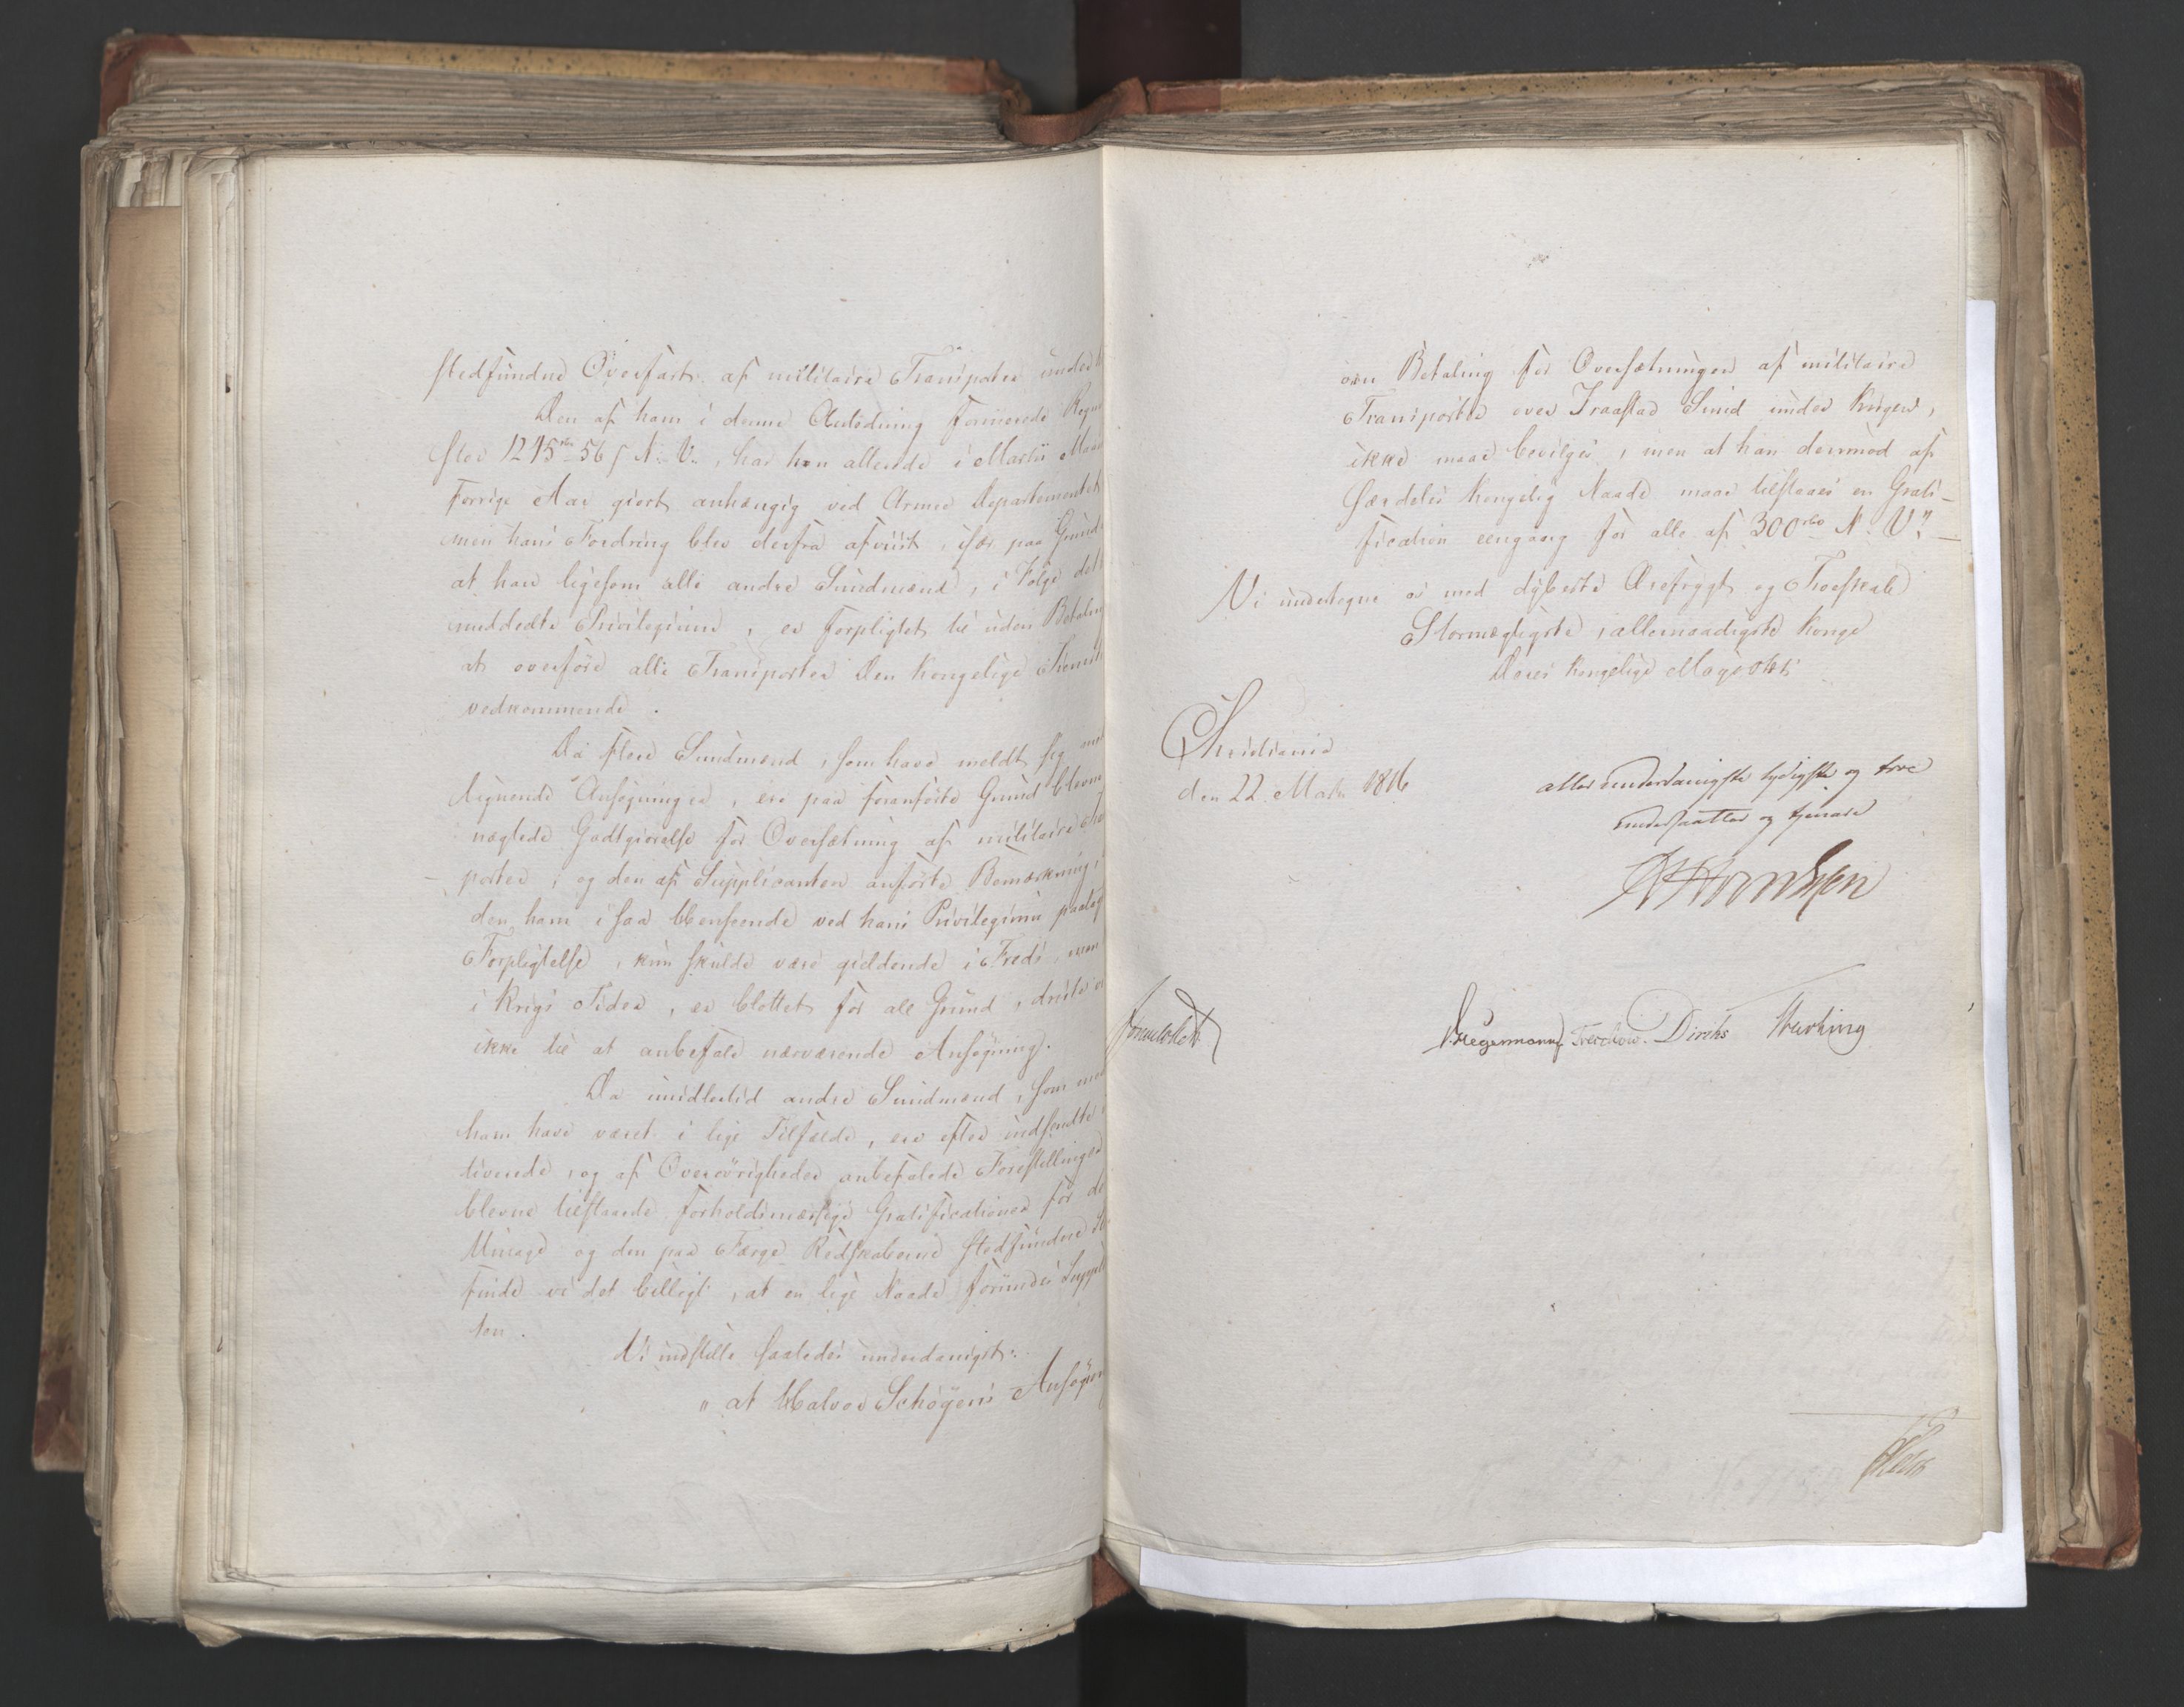 stedfundne Overfart af militaire Transporter under
Den af ham i denne Anledning formerede Regn
stor 1215 rbd 56 s N. V., har han allerede i Martii Maan
forrige Aar giort anhængig ved Armee Departementet
men hans Fordring blev derfra afviist, især paa Grund
at han ligesom alle andre Sundmænd, i Følge det
meddeelte Privilegium, er forpligtet til uden Betaling
at overføre alle Transporter den kongelige Tieneste
vedkommende.
Da flere Sundmænd, som have meldt sig med
lignende Ansøgninger, ere paa foranførte Grund blevne
nægtede Godtgiørelse for Oversætning af militaire
porter, og den af Supplicanten anførte Bemærkning,
den ham i saa Henseende ved hans Privilegium paalag
Forpligtelse, kun skulde være gieldende i Freds, men
i Krigs Tider, er blottet for all Grund, driste vi
ikke til at anbefale nærværende Ansøgning.
Da imidlertid andre Sundmænd, som med
ham have været i lige Tilfælde, ere efter indsendte
tiverede, og af Overøvrigheder anbefalede Forestillinger
blevne tilstaaede forholdsmæssige Gratificationer for de
Umage og den paa Færge Redskaberne stedfundne
finde vi det billigt, at en lige Naade forundes Suppli
ten.
Vi indstille saaledes underdanigst:
" at Halvor Schøyens Ansøgning
om Betaling for Oversætningen af militaire
Transporter over Fraastad Sund under Krigen,
ikke maae bevilges, men at han derimod af
særdeles Kongelig Naade maae tilstaaes en Grati-
fication eengang for alle af 300 rbd N. V."
Vi undertegne os med dybeste Ærefrygt og Troeskab
Stormægtigste, allernaadigste Konge
Deres Kongelige Majestets
Christiania
den 22 Marts 1816
allerunderdanigste lydigste og troe
undersaatter og tjenere
Hegermann Treschow. Diriks Motzfeldt